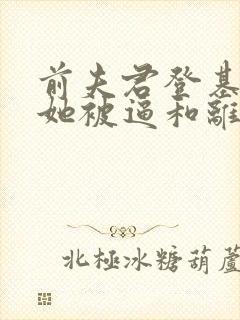 前夫君登基
她被逼和離
北極冰糖葫蘆